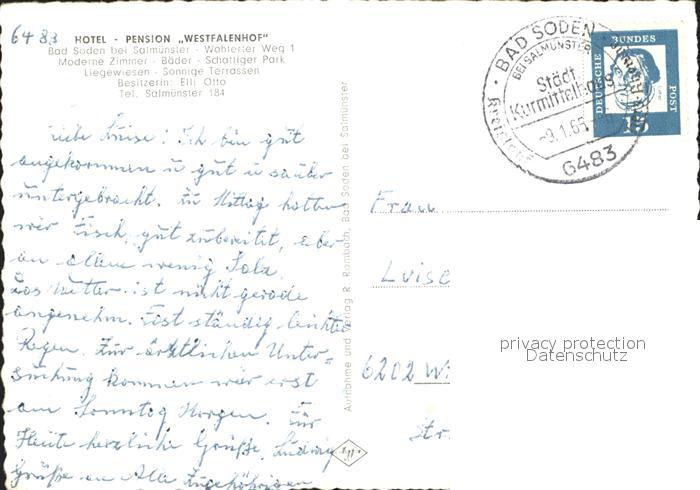 6483
HOTEL - PENSION „WESTFALENHOF"
Bad Soden bei Salmünster - Wahlerter Weg 1
Moderne Zimmer - Bäder - Schattiger Park
Liegewiesen - Sonnige Terrassen
Besitzerin: Elli Otto
Tel. Salmünster 184
Liebe Luise! Ich bin gut
angekommen u gut u sauber
untergebracht. Zu Mittag hatten
wir Fisch, gut zubereitet, aber
an allem wenig Salz.
Das Wetter ist nicht gerade
angenehm. Fast ständig leichter
Regen. Zur ärztlichen Unter=
suchung kommen wir erst
am Sonntag Morgen. Für
Heute herzliche Grüße, Ludwig
Grüße an Alle Angehörigen
Aufnahme und Verlag R. Rombach, Bad Soden bei Salmünster
BAD SODEN
BEI SALMÜNSTER
Städt.
Kurmittelhaus
-9.1.65
6483
DEUTSCHE
BUNDES
POST
15
Frau
Luise
6202 W
Str.
privacy protection
Datenschutz